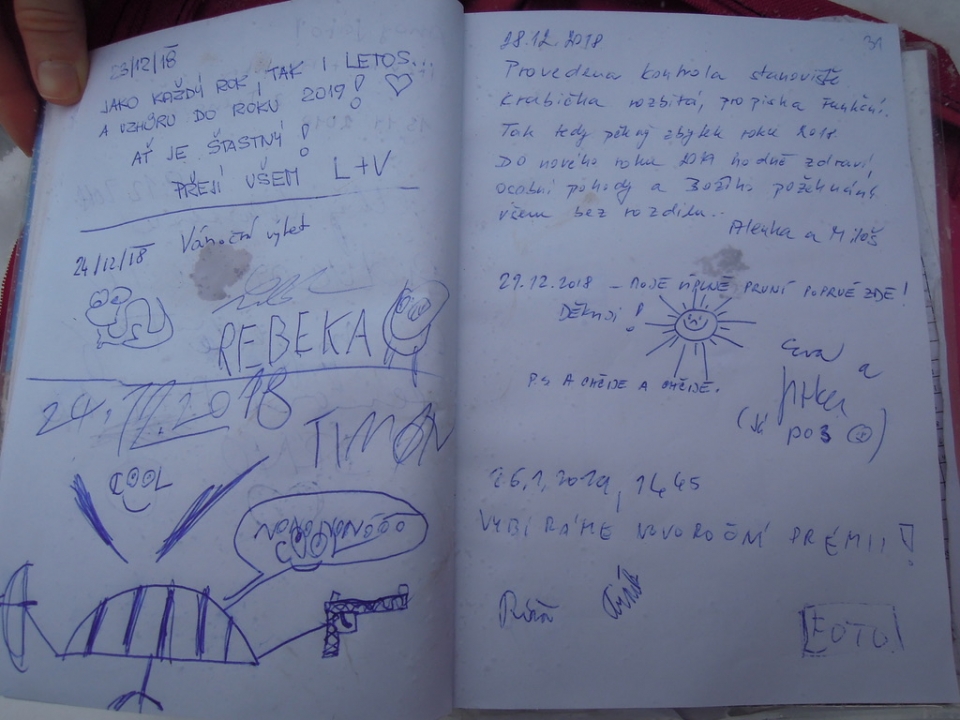 23/12/18
JAKO KAŽDÝ ROK TAK I LETOS...
A VZHŮRU DO ROKU 2019!
AŤ JE ŠŤASTNÝ!
PŘEJÍ VŠEM L+V
24/12/18 Vánoční výlet
REBEKA
24.12.2018
TIMON
COOL
31
28.12.2018
Provedena kontrola stanoviště
Krabička rozbitá, propiska funkční.
Tak tedy pěkný zbytek roku 2018.
DO nového roku 2019 hodně zdraví,
osobní pohody a Božího požehnání
všem bez rozdílu..
Alenka a Miloš
29.12.2018 – MOJE ÚPLNĚ PRVNÍ POPRVÉ ZDE!
DĚKUJI!
P.S A CHČIJE A CHČIJE.
Eva a
Jitka
26.1.2019, 14.45
VYBÍRÁME NOVOROČNÍ PRÉMII!
FOTO